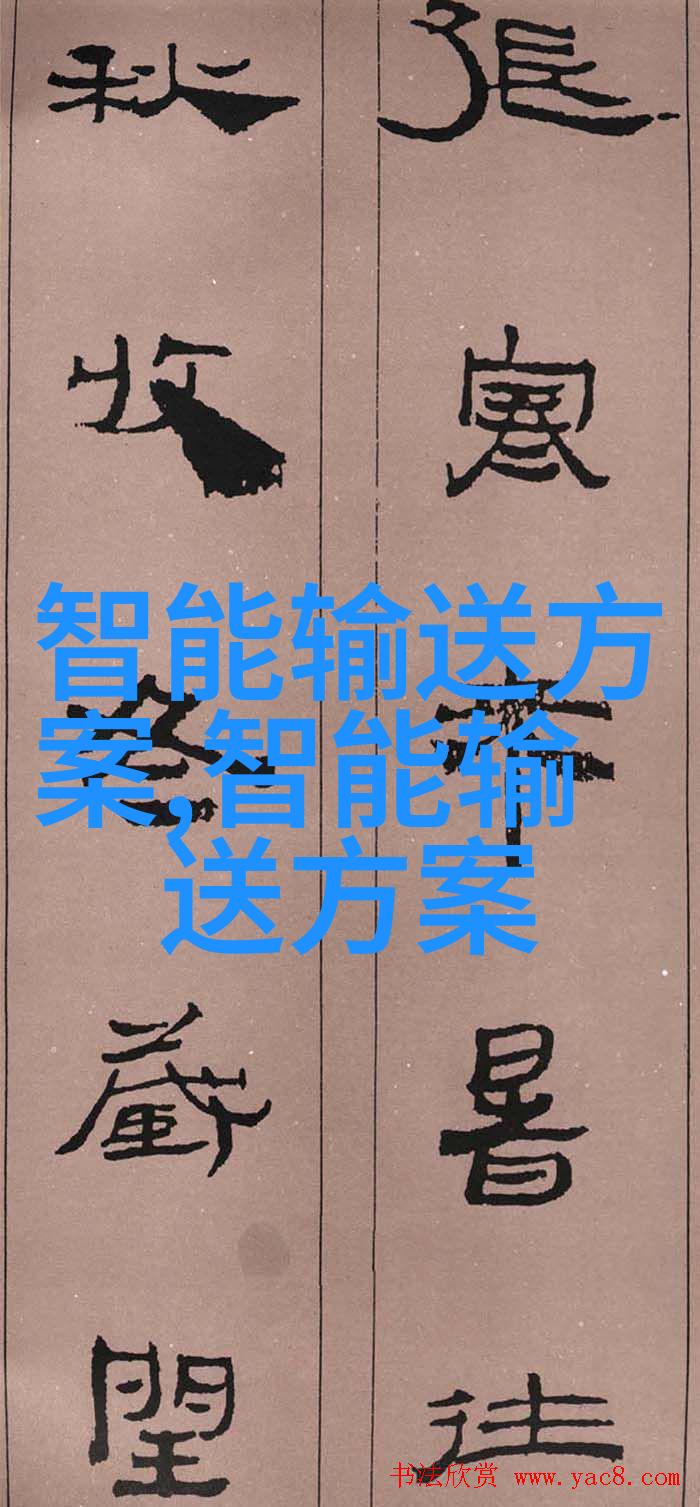 張寒來暑往
秋收冬藏閏
智能输送方
案,智能输
送方案
书法欣赏 www.yac8.com